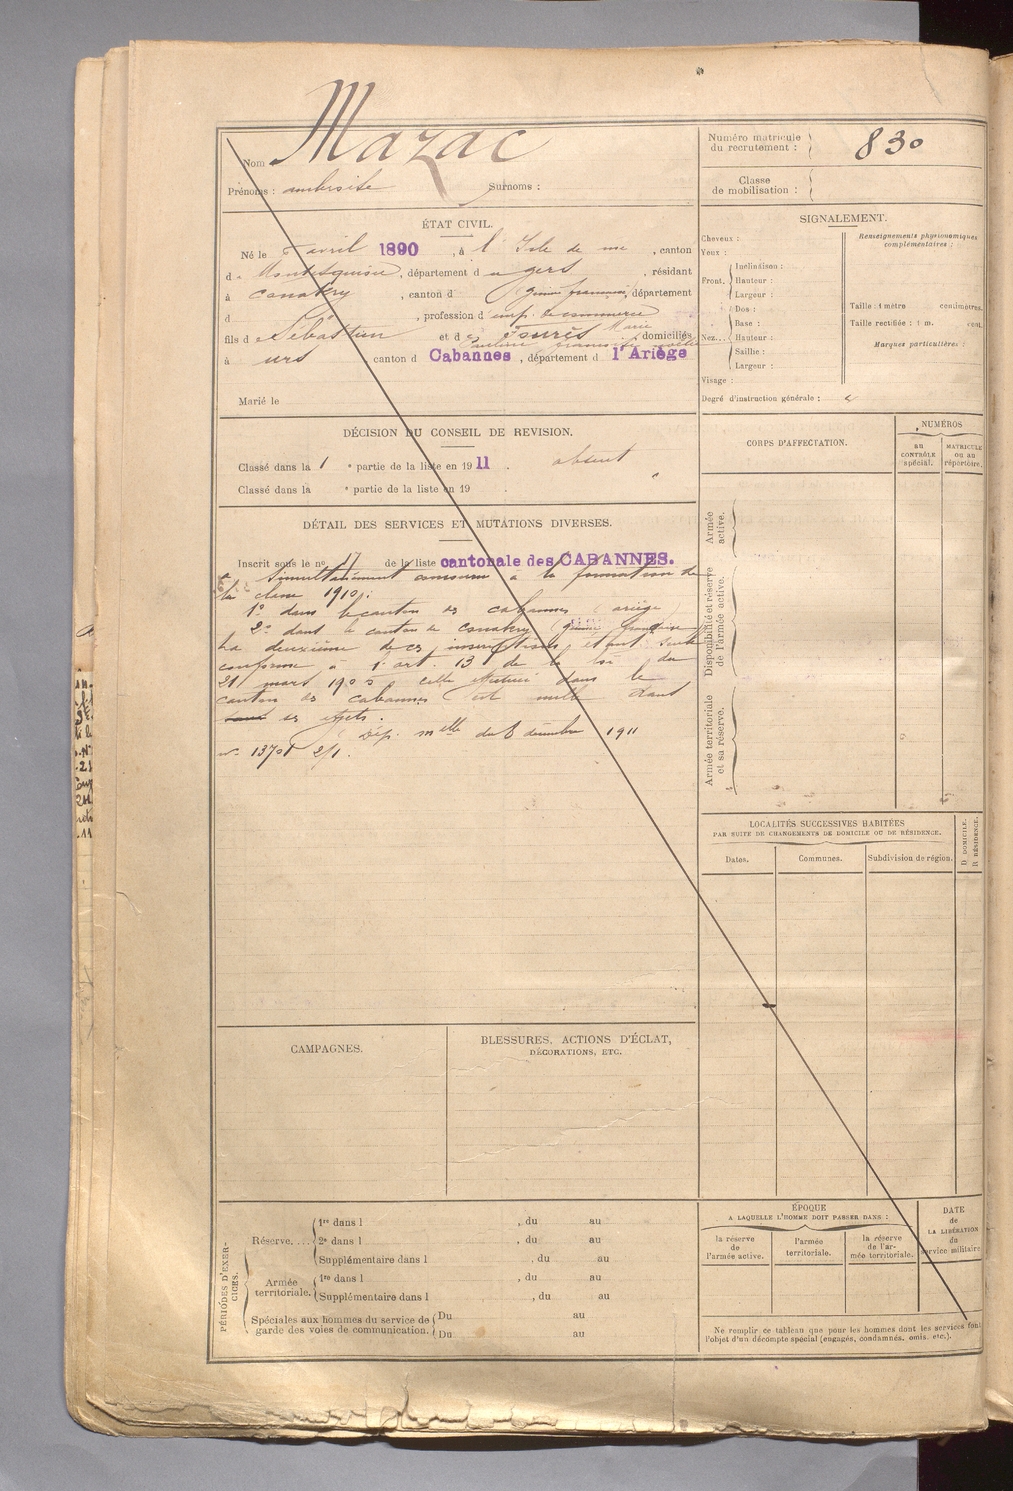 Nom Mazac
Prénoms : ambroise Surnoms :
Numéro matricule
du recrutement : 830
Classe
de mobilisation :
ÉTAT CIVIL.
Né le 5 avril 1890, à l'Isle de noe, canton
de Montesquiou, département du gers, résidant
à conakry, canton d (guinée française), département
d , profession d'emp. de commerce
fils de Sébastien et d Marie domiciliés
à urs, canton d Cabannes, département d l'Ariège
Marié le
SIGNALEMENT.
Cheveux :
Yeux :
Front. Inclinaison :
Hauteur :
Largeur :
Nez... Dos :
Base :
Hauteur :
Saillie :
Largeur :
Visage :
Renseignements physionomiques
complémentaires :
Taille : 1 mètre centimètres.
Taille rectifiée : 1 m. cent.
Marques particulières :
Degré d'instruction générale :
DÉCISION DU CONSEIL DE REVISION.
Classé dans la 1 e partie de la liste en 1911. absent
Classé dans la e partie de la liste en 19 .
DÉTAIL DES SERVICES ET MUTATIONS DIVERSES.
Inscrit sous le no 17 de la liste cantonale des CABANNES.
simultanément concouru à la formation de
la classe 1910 :
1º dans le canton des cabannes (ariège)
2º dans le canton de conakry (guinée française
La deuxième de ces inscriptions étant seule
conforme à l'art. 13 de la loi du
21 mars 1905, celle effectuée dans le
canton des cabannes est nulle dans
tous ses effets.
Dép. mlle du 8 décembre 1911
no 13701 2/1.
CORPS D'AFFECTATION.
NUMÉROS
au
CONTRÔLE
spécial.
MATRICULE
ou au
répertoire.
Armée
active.
Disponibilité et réserve
de l'armée active.
Armée territoriale
et sa réserve.
LOCALITÉS SUCCESSIVES HABITÉES
PAR SUITE DE CHANGEMENTS DE DOMICILE OU DE RÉSIDENCE.
Dates. Communes. Subdivision de région.
D DOMICILE.
R RÉSIDENCE.
CAMPAGNES.
BLESSURES, ACTIONS D'ÉCLAT,
DÉCORATIONS, ETC.
PÉRIODES D'EXER-
CICES.
Réserve.... 1re dans l , du au
2e dans l , du au
Supplémentaire dans l , du au
Armée
territoriale. 1re dans l , du au
Supplémentaire dans l , du au
Spéciales aux hommes du service de
garde des voies de communication. Du au
Du au
ÉPOQUE
A LAQUELLE L'HOMME DOIT PASSER DANS :
la réserve
de
l'armée active.
l'armée
territoriale.
la réserve
de l'ar-
mée territoriale.
DATE
de
LA LIBÉRATION
du
service militaire
Ne remplir ce tableau que pour les hommes dont les services font
l'objet d'un décompte spécial (engagés, condamnés, omis, etc.).